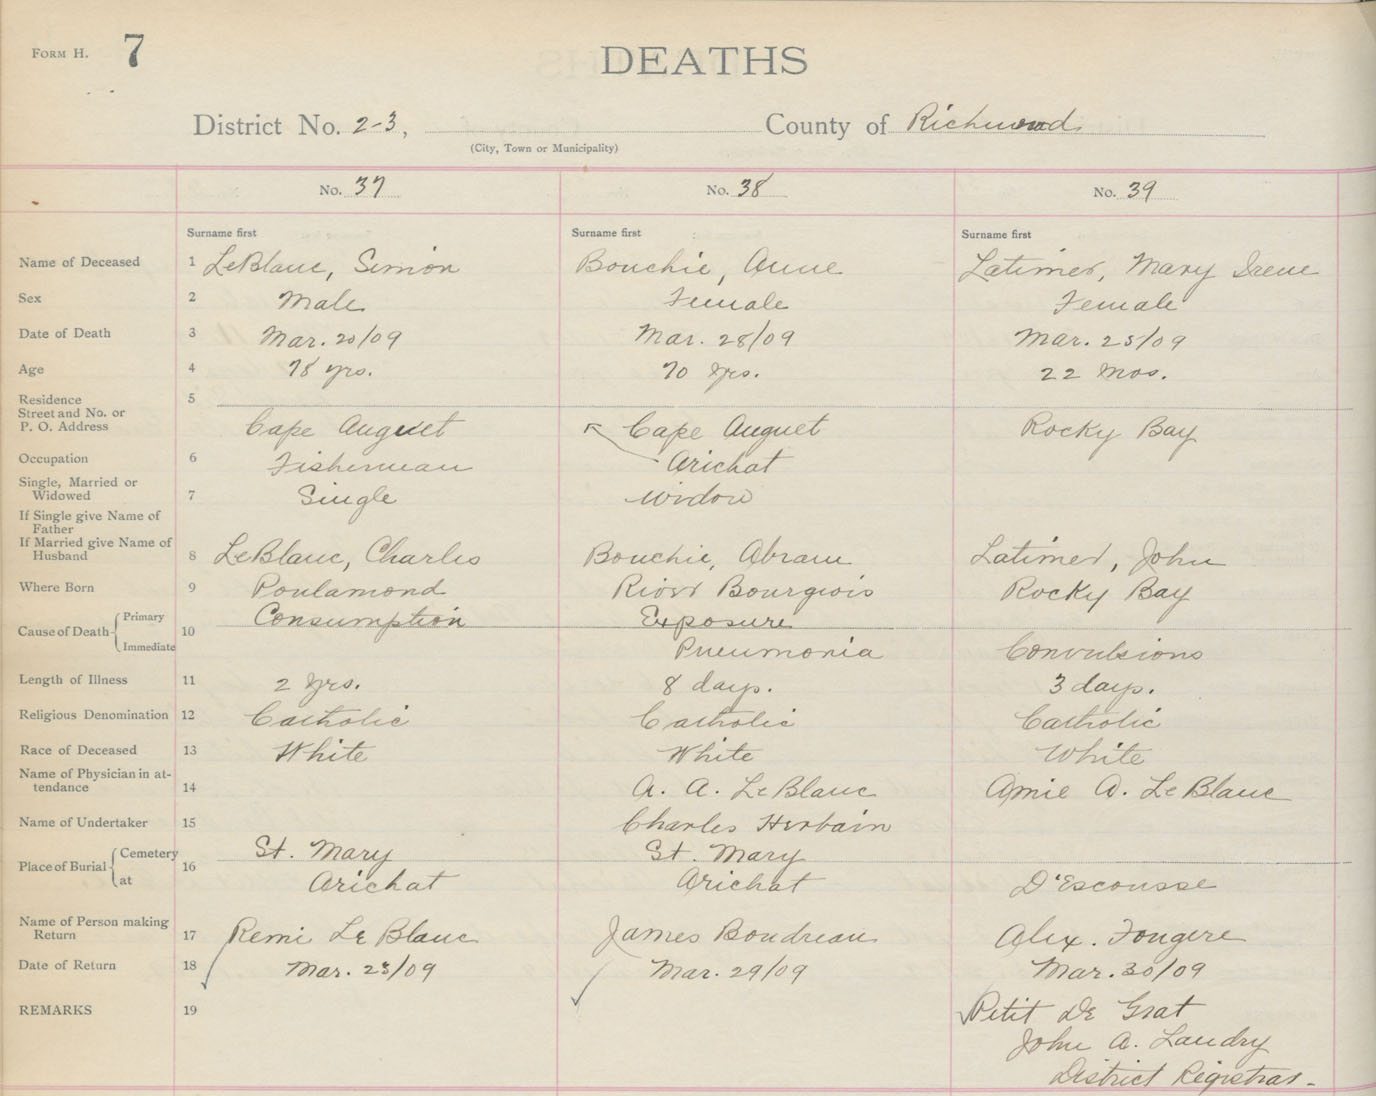 FORM H. 7
DEATHS
District No. 2-3, County of Richmond
(City, Town or Municipality)
No. 37 No. 38 No. 39
Surname first Surname first Surname first
Name of Deceased 1 LeBlanc, Simon Bouchie, Anne Latimer, Mary Irene
Sex 2 Male Female Female
Date of Death 3 Mar. 20/09 Mar. 28/09 Mar. 25/09
Age 4 78 yrs. 70 yrs. 22 mos.
Residence 5
Street and No. or
P. O. Address Cape Auguet Cape Auguet Rocky Bay
Occupation 6 Fisherman Arichat
Single, Married or
Widowed 7 Single Widow
If Single give Name of
Father
If Married give Name of
Husband 8 LeBlanc, Charles Bouchie, Abram Latimer, John
Where Born 9 Poulamond River Bourgeois Rocky Bay
Cause of Death Primary 10 Consumption Exposure
Immediate Pneumonia Convulsions
Length of Illness 11 2 yrs. 8 days. 3 days.
Religious Denomination 12 Catholic Catholic Catholic
Race of Deceased 13 White White White
Name of Physician in at-
tendance 14 A. A. LeBlanc Amie A. LeBlanc
Name of Undertaker 15 Charles Herbain
Place of Burial Cemetery 16 St. Mary St. Mary
at Arichat Arichat D'Escousse
Name of Person making
Return 17 Remi LeBlanc James Boudreau Alex. Fougere
Date of Return 18 Mar. 23/09 Mar. 29/09 Mar. 30/09
REMARKS 19 Petit De Grat
John A. Landry
District Registrar.